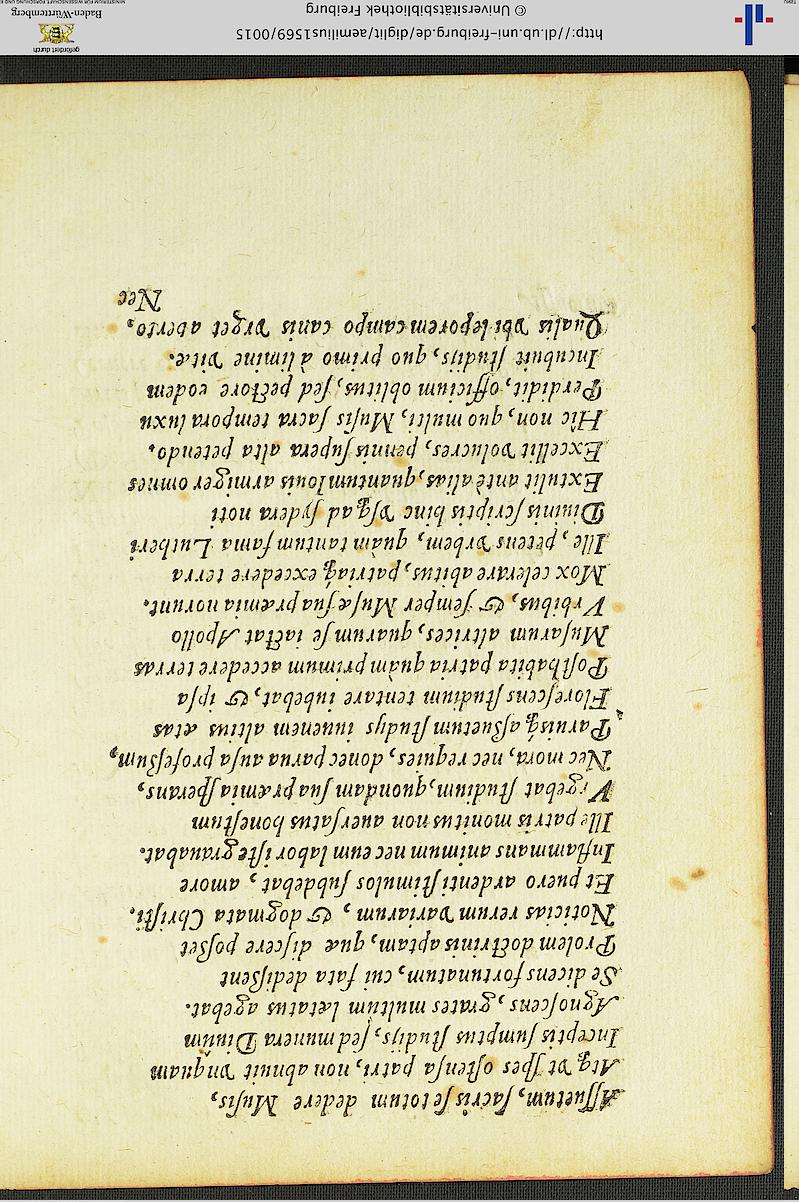 Assuetum, sacris se totum dedere Musis,
Atq; vt spes ostensa patri, non abnuit vnquam
Inceptis sumptus studijs, sed munera Diuûm
Agnoscens, grates multùm lætatus agebat.
Se dicens fortunatum, cui fata dedissent
Prolem doctrinis aptam, quæ discere posset
Noticias rerum variarum, & dogmata Christi.
Et puero ardenti stimulos subdebat, amore
Inflammans animum nec eum labor iste grauabat.
Ille patris monitus non auersatus honestum
Vrgebat studium, quondam sua præmia sperans,
Nec mora, nec requies, donec parua ausa professum,
Paruisq; assuetum studijs iuuenem altius ætas
Florescens studium tentare iubebat, & ipsa
Posthabita patria quàm primum accedere terras
Musarum altrices, quarum se iactat Apollo
Vrbibus, & semper Musæ sua præmia norunt.
Mox celerare abitus, patriaq; excedere terra
Ille, petens vrbem, quàm tantum fama Lutheri
Diuinis scriptis hinc vsq; ad sydera noti
Extulit antè alias, quantum Iouis armiger omnes
Excellit volucres, pennis supera alta petendo.
Hîc non, quo multi, Musis sacra tempora luxu
Perdidit, officium oblitus, sed pectore eodem
Incubuit studijs, quo primo à limine vitæ.
Qualis vbi leporem campo canis vrget aberto,
Nec
http://dl.ub.uni-freiburg.de/diglit/aemilius1569/0015
© Universitätsbibliothek Freiburg
gefördert durch
Baden-Württemberg